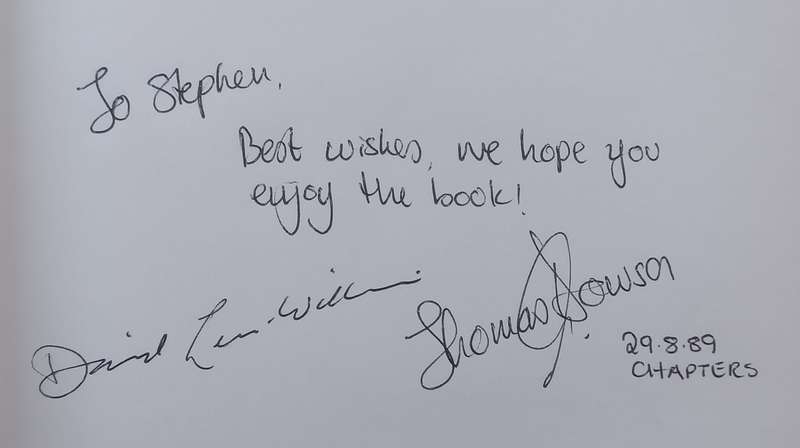 To Stephen,
Best wishes, we hope you
enjoy the book!
David Lewis-Williams
Thomas Dowson
29.8.89
CHAPTERS